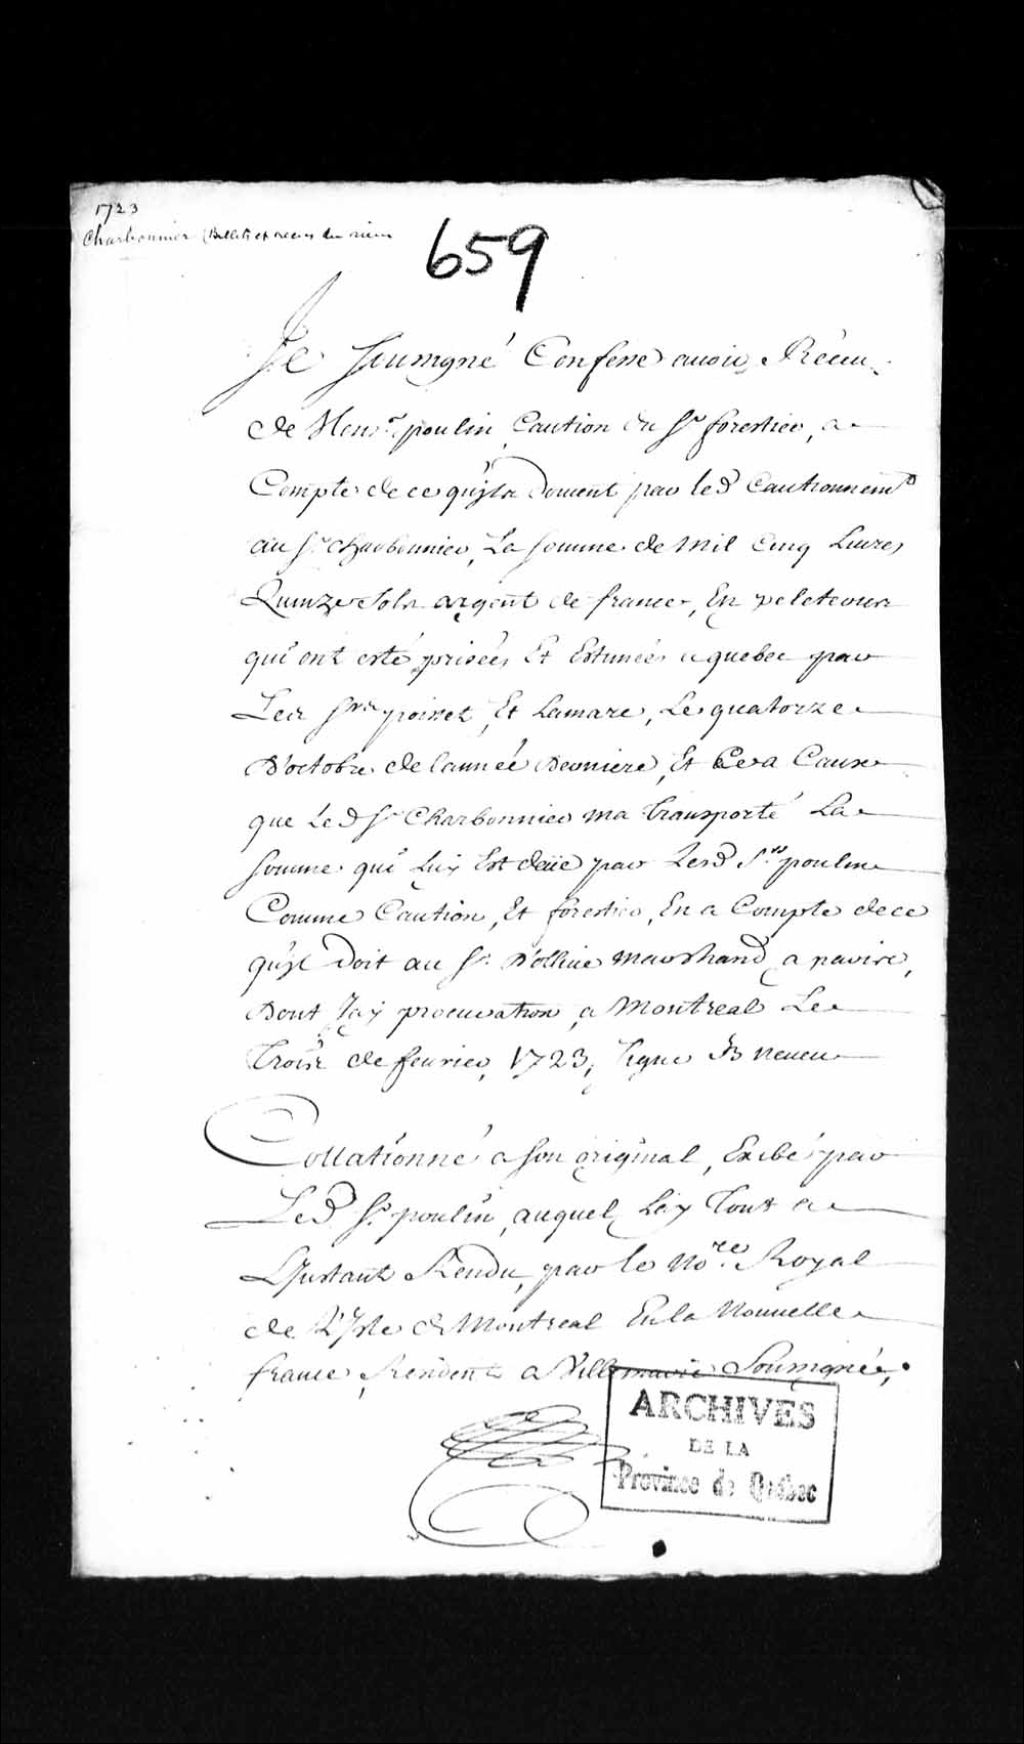 1723
Charbonnier (Billets et recus du sieur
659
Je Soussigné Confesse auoir Réceu
de Mons.r poulin Caution du S.r forestier, a
Compte de ce qu'jls doiuent par led Cautionnem.t
au S.r charbonnier, La somme de Mil Cinq Liures
Quinze Sols argent de france, En peleteries
qui ont esté prisées Et Estimées a quebec par
Les S.rs poisset, Et Lamare, Le quatorze
D'octobre de L'année Derniere, Et Ce a Cause
que Led S.r Charbonnier ma transporté La
somme qui Luy Est deüe par Lesd S.rs poulin
Comme Caution, Et forestier, En a Compte de ce
qu'jl Doit au S.r marchand a navire,
Dont J'ay procuration, a Montreal Le
Trois.e de feurier, 1723, signe JB neueu
Collationné a son original, Exibé par
Led S.r poulin, auquel Léz Tout a
L'jnstant Rendu, par le No.re Royal
de L'jsle de Montreal En la Nouuelle
france, Résident a Villemarie Soussigné,
ARCHIVES
DE LA
Province de Québec